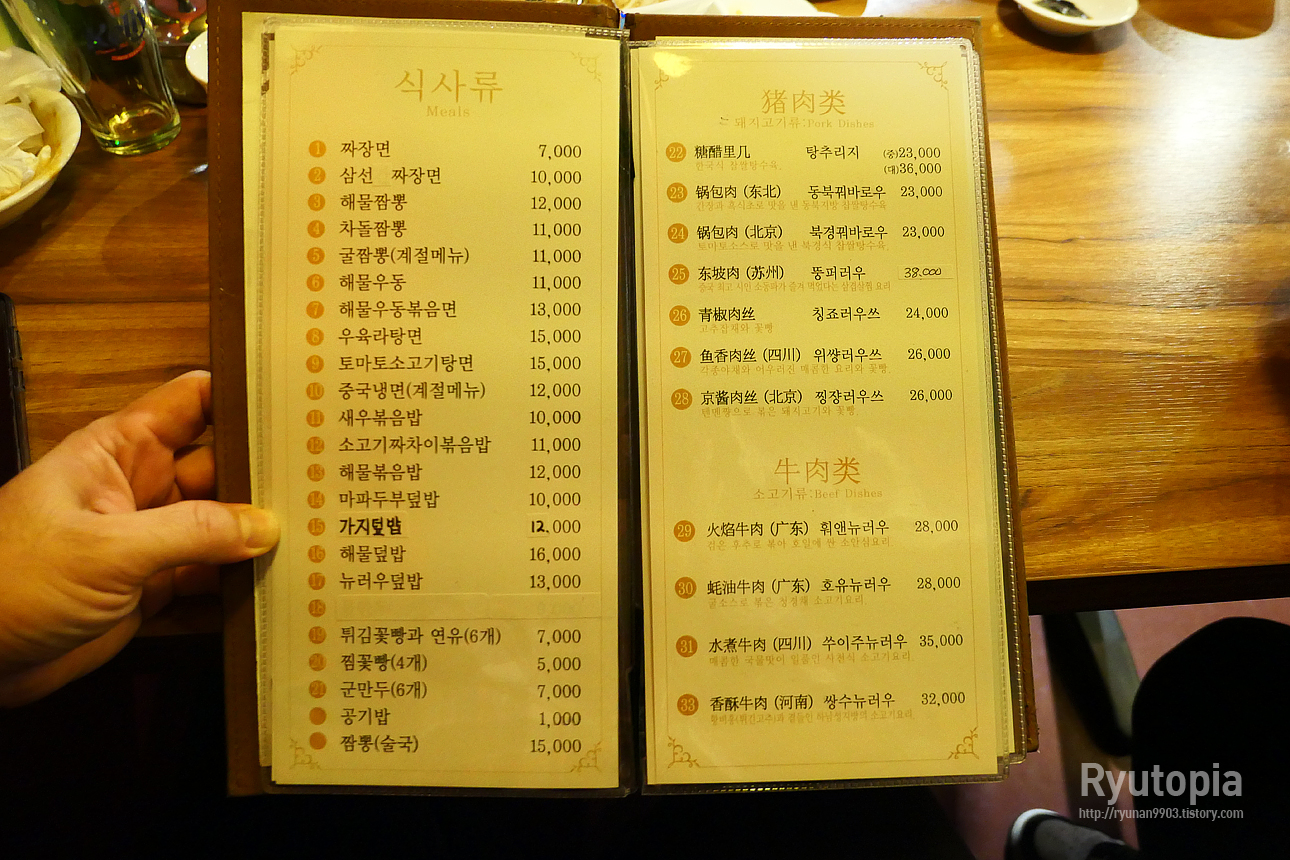 식사류
Meals
1 짜장면 7,000
2 삼선 짜장면 10,000
3 해물짬뽕 12,000
4 차돌짬뽕 11,000
5 굴짬뽕(계절메뉴) 11,000
6 해물우동 11,000
7 해물우동볶음면 13,000
8 우육라탕면 15,000
9 토마토소고기탕면 15,000
10 중국냉면(계절메뉴) 12,000
11 새우볶음밥 10,000
12 소고기짜차이볶음밥 11,000
13 해물볶음밥 12,000
14 마파두부덮밥 10,000
15 가지덮밥 12,000
16 해물덮밥 16,000
17 뉴러우덮밥 13,000
18
19 튀김꽃빵과 연유(6개) 7,000
20 찜꽃빵(4개) 5,000
21 군만두(6개) 7,000
공기밥 1,000
짬뽕(술국) 15,000
猪肉类
돼지고기류:Pork Dishes
22 糖醋里几 탕추리지 (중)23,000
한국식 찹쌀탕수육.
(대)36,000
23 锅包肉 (东北) 동북꿔바로우 23,000
간장과 흑식초로 맛을 낸 동북지방 찹쌀탕수육
24 锅包肉 (北京) 북경꿔바로우 23,000
토마토소스로 맛을 낸 북경식 찹쌀탕수육.
25 东坡肉 (苏州) 뚱퍼러우 38.000
중국 최고 시인 소동파가 즐겨 먹었다는 삼겹살찜 요리
26 青椒肉丝 칭죠러우쓰 24,000
고추잡채와 꽃빵
27 鱼香肉丝 (四川) 위썅러우쓰 26,000
각종야채와 어우러진 매콤한 요리와 꽃빵.
28 京酱肉丝 (北京) 찡쟝러우쓰 26,000
텐멘짱으로 볶은 돼지고기와 꽃빵.
牛肉类
소고기류:Beef Dishes
29 火焰牛肉 (广东) 훠앤뉴러우 28,000
검은 후추로 볶아 호일에 싼 소안심요리
30 蚝油牛肉 (广东) 호유뉴러우 28,000
굴소스로 볶은 청경채 소고기요리.
31 水煮牛肉 (四川) 쑤이주뉴러우 35,000
매콤한 국물맛이 일품인 사천식 소고기요리.
33 香酥牛肉 (河南) 쌍수뉴러우 32,000
Ryutopia
http://ryunan9903.tistory.com